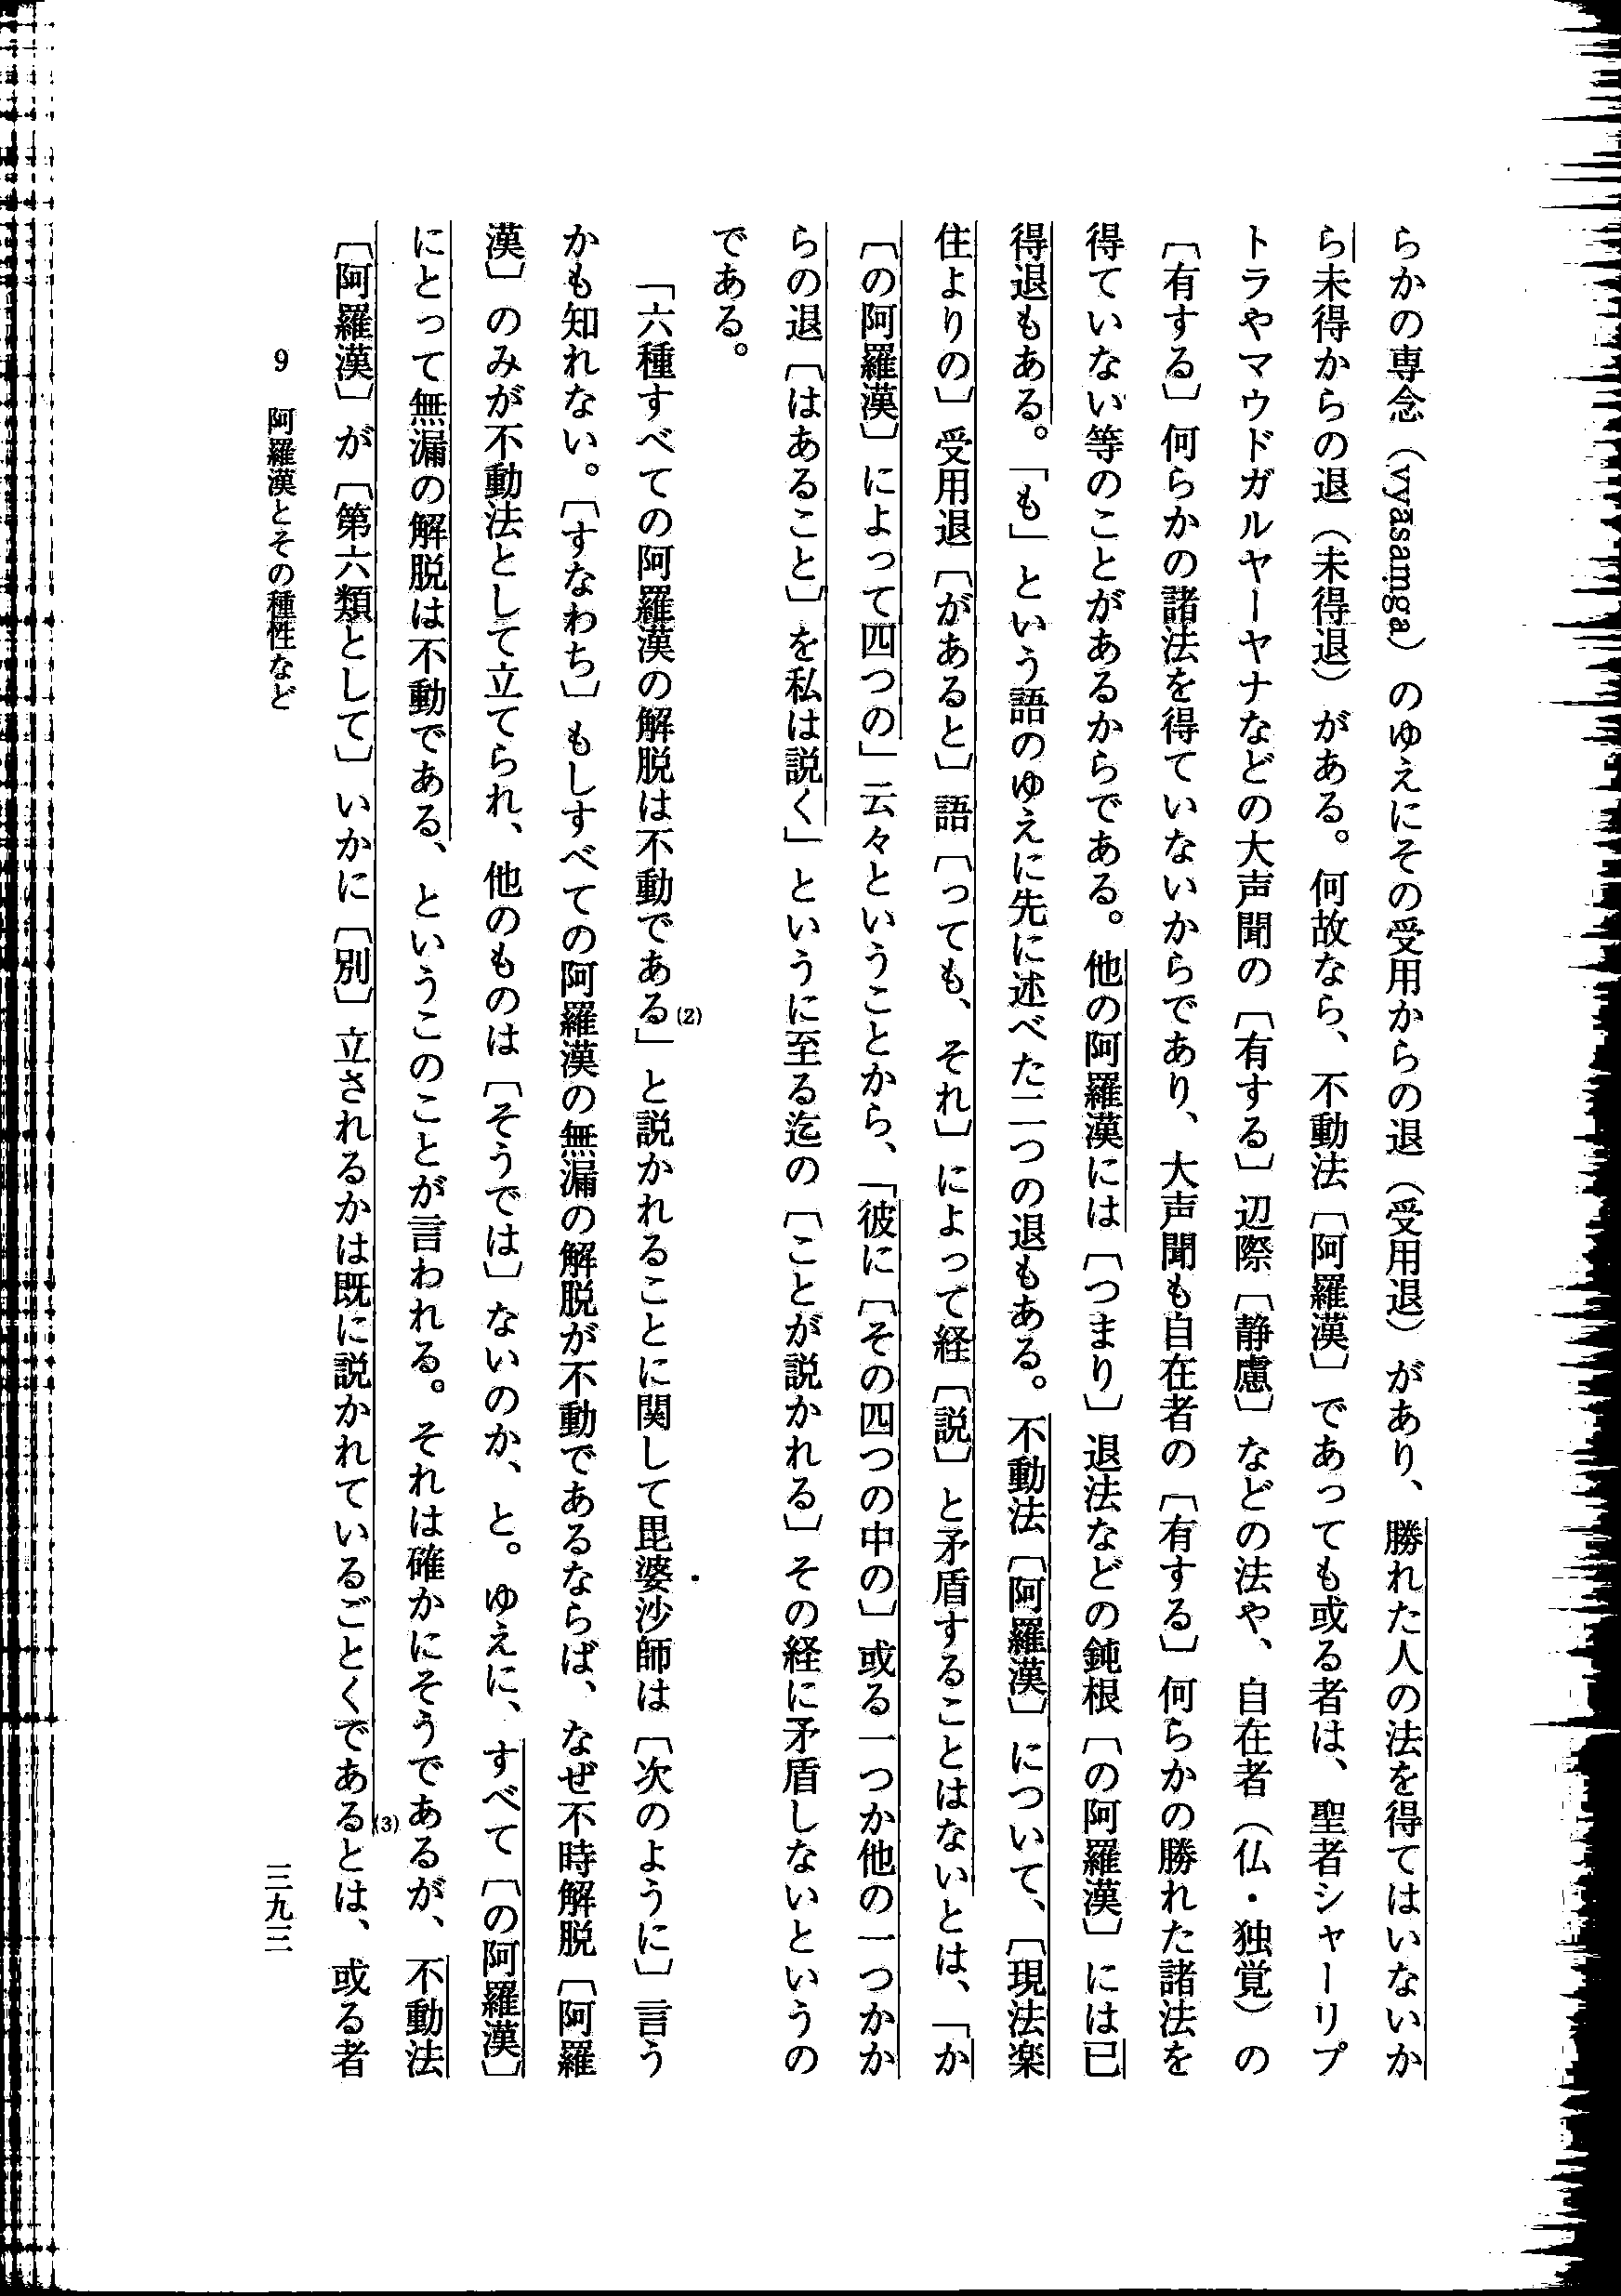 らかの専念（vyāsaṃga）のゆえにその受用からの退（受用退）があり、勝れた人の法を得てはいないか
ら未得からの退（未得退）がある。何故なら、不動法〔阿羅漢〕であっても或る者は、聖者シャーリプ
トラやマウドガルヤーヤナなどの大声聞の〔有する〕辺際〔静慮〕などの法や、自在者（仏・独覚）の
〔有する〕何らかの諸法を得ていないからであり、大声聞も自在者の〔有する〕何らかの勝れた諸法を
得ていない等のことがあるからである。他の阿羅漢には〔つまり〕退法などの鈍根〔の阿羅漢〕には已
得退もある。「も」という語のゆえに先に述べた二つの退もある。不動法〔阿羅漢〕について、〔現法楽
住よりの〕受用退〔があると〕語〔っても、それ〕によって経〔説〕と矛盾することはないとは、「か
〔の阿羅漢〕によって四つの」云々ということから、「彼に〔その四つの中の〕或る一つか他の一つかか
らの退〔はあること〕を私は説く」というに至る迄の〔ことが説かれる〕その経に矛盾しないというの
である。
「六種すべての阿羅漢の解脱は不動である」(2)と説かれることに関して毘婆沙師は〔次のように〕言う
かも知れない。〔すなわち〕もしすべての阿羅漢の無漏の解脱が不動であるならば、なぜ不時解脱〔阿羅
漢〕のみが不動法として立てられ、他のものは〔そうでは〕ないのか、と。ゆえに、すべて〔の阿羅漢〕
にとって無漏の解脱は不動である、というこのことが言われる。それは確かにそうであるが、不動法
〔阿羅漢〕が〔第六類として〕いかに〔別〕立されるかは既に説かれているごとくである(3)とは、或る者
9 阿羅漢とその種性など
三九三